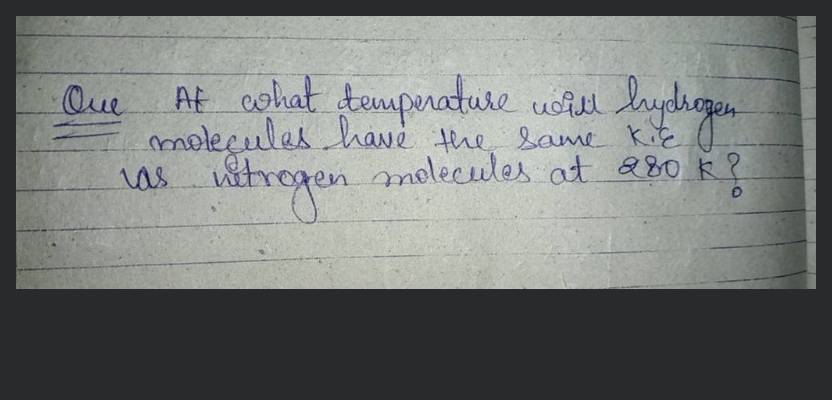 Que At what temperature will hydrogen
molecules have the same K.E
as nitrogen molecules at 280 K?